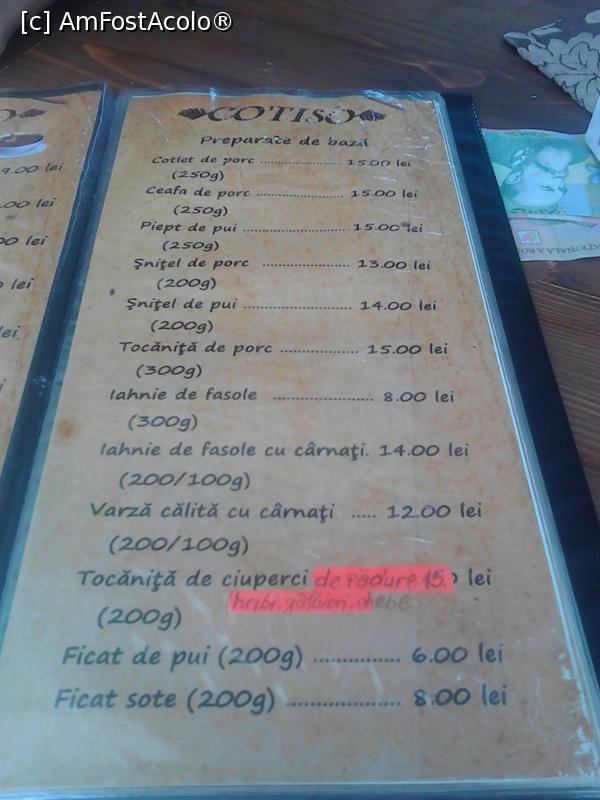 [c] AmFostAcolo®
COTISO
Preparate de bază
Cotlet de porc ..................... 15.00 lei
(250g)
Ceafa de porc ..................... 15.00 lei
(250g)
Piept de pui ........................ 15.00 lei
(250g)
Şniţel de porc ................... 13.00 lei
(200g)
Şniţel de pui ....................... 14.00 lei
(200g)
Tocăniţă de porc ................ 15.00 lei
(300g)
Iahnie de fasole ..................... 8.00 lei
(300g)
Iahnie de fasole cu cârnaţi. 14.00 lei
(200/100g)
Varză călită cu cârnaţi ..... 12.00 lei
(200/100g)
Tocăniţă de ciuperci de pădure 15. lei
hribi, gălbiori, ghebe
(200g)
Ficat de pui (200g) ............... 6.00 lei
Ficat sote (200g) .................... 8.00 lei
O
9.00 lei
.00 lei
00 lei
lei
lei